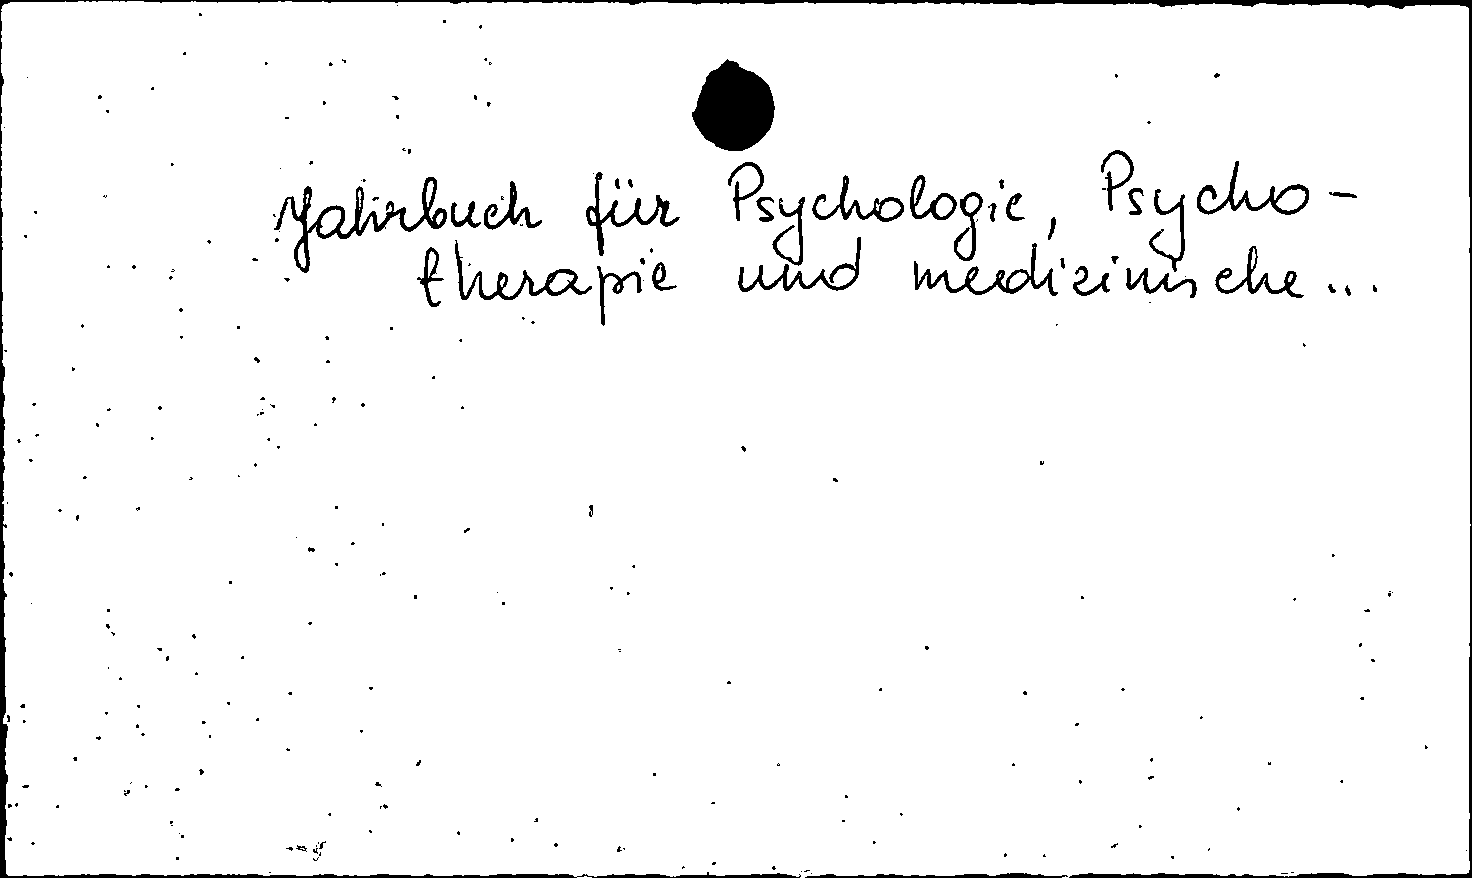 Jahrbuch für Psychologie, Psycho-
therapie und medizinische...